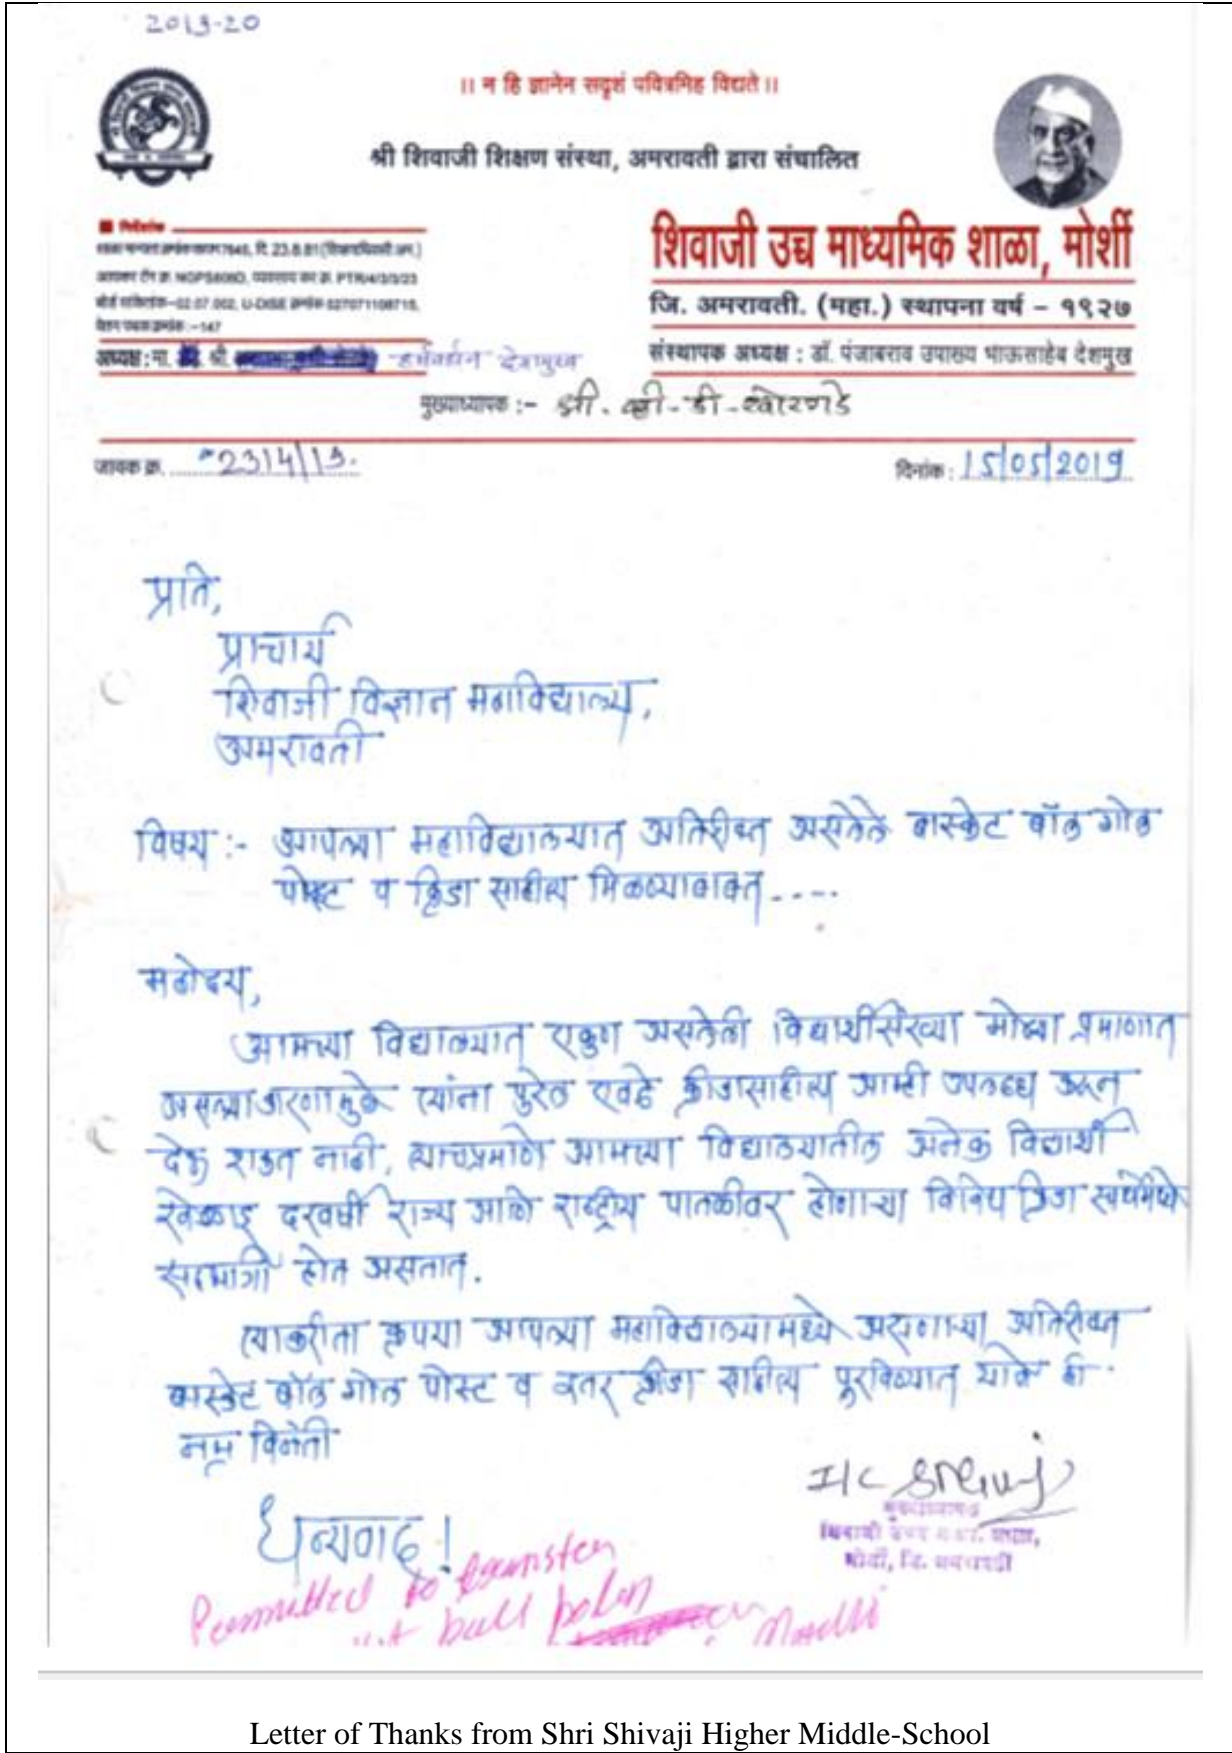 2019-20
।। न हि ज्ञानेन सदृशं पवित्रमिह विद्यते ।।
श्री शिवाजी शिक्षण संस्था, अमरावती द्वारा संचालित
शिवाजी उच्च माध्यमिक शाळा, मोर्शी
जि. अमरावती. (महा.) स्थापना वर्ष – १९२७
संस्थापक अध्यक्ष : डॉ. पंजाबराव उपाख्य भाऊसाहेब देशमुख
निर्देशांक
7645, दि. 23.8.81
बोर्ड सांकेतांक–02.07.002, U-DISE क्रमांक 02707110871
वेतन पथक क्रमांक :–147
अध्यक्ष : मा. श्री. हर्षवर्धन देशमुख
मुख्याध्यापक :- श्री. व्ही-डी-
जावक क्र. 2314/19.
दिनांक : 15/05/2019
प्रति,
प्राचार्य
शिवाजी विज्ञान महाविद्यालय,
अमरावती
विषय :- आपल्या महाविद्यालयात अतिरीक्त असलेले बास्केट बॉल गोल
पोस्ट व क्रिडा साहीत्य मिळण्याबाबत.....
महोदय,
आमच्या विद्यालयात एकुण असलेली विद्यार्थीसंख्या मोठ्या प्रमाणात
असल्याकारणामुळे त्यांना पुरेल एवढे क्रीडासाहीत्य आम्ही उपलब्ध करून
देऊ शकत नाही, त्याचप्रमाणे आमच्या विद्यालयातील अनेक विद्यार्थी
खेळाडू दरवर्षी राज्य आणि राष्ट्रीय पातळीवर होणाऱ्या विविध क्रिडा स्पर्धेमध्ये
सहभागी होत असतात.
त्याकरीता कृपया आपल्या महाविद्यालयामध्ये असणाऱ्या अतिरीक्त
बास्केट बॉल गोल पोस्ट व इतर क्रीडा साहीत्य पुरविण्यात यावे ही
नम्र विनंती
धन्यवाद !
I/C
मुख्याध्यापक
शिवाजी उच्च माध्य. शाळा,
मोर्शी, जि. अमरावती
Permitted to
ball
Letter of Thanks from Shri Shivaji Higher Middle-School